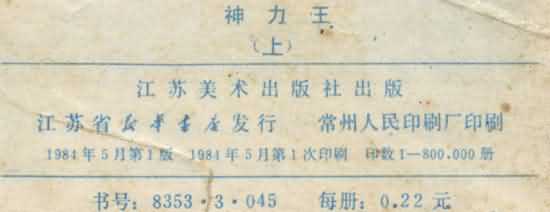 神力王
（上）
江苏美术出版社出版
江苏省新华书店发行 常州人民印刷厂印刷
1984年5月第1版 1984年5月第1次印刷 印数1—800.000册
书号：8353·3·045 每册：0.22元